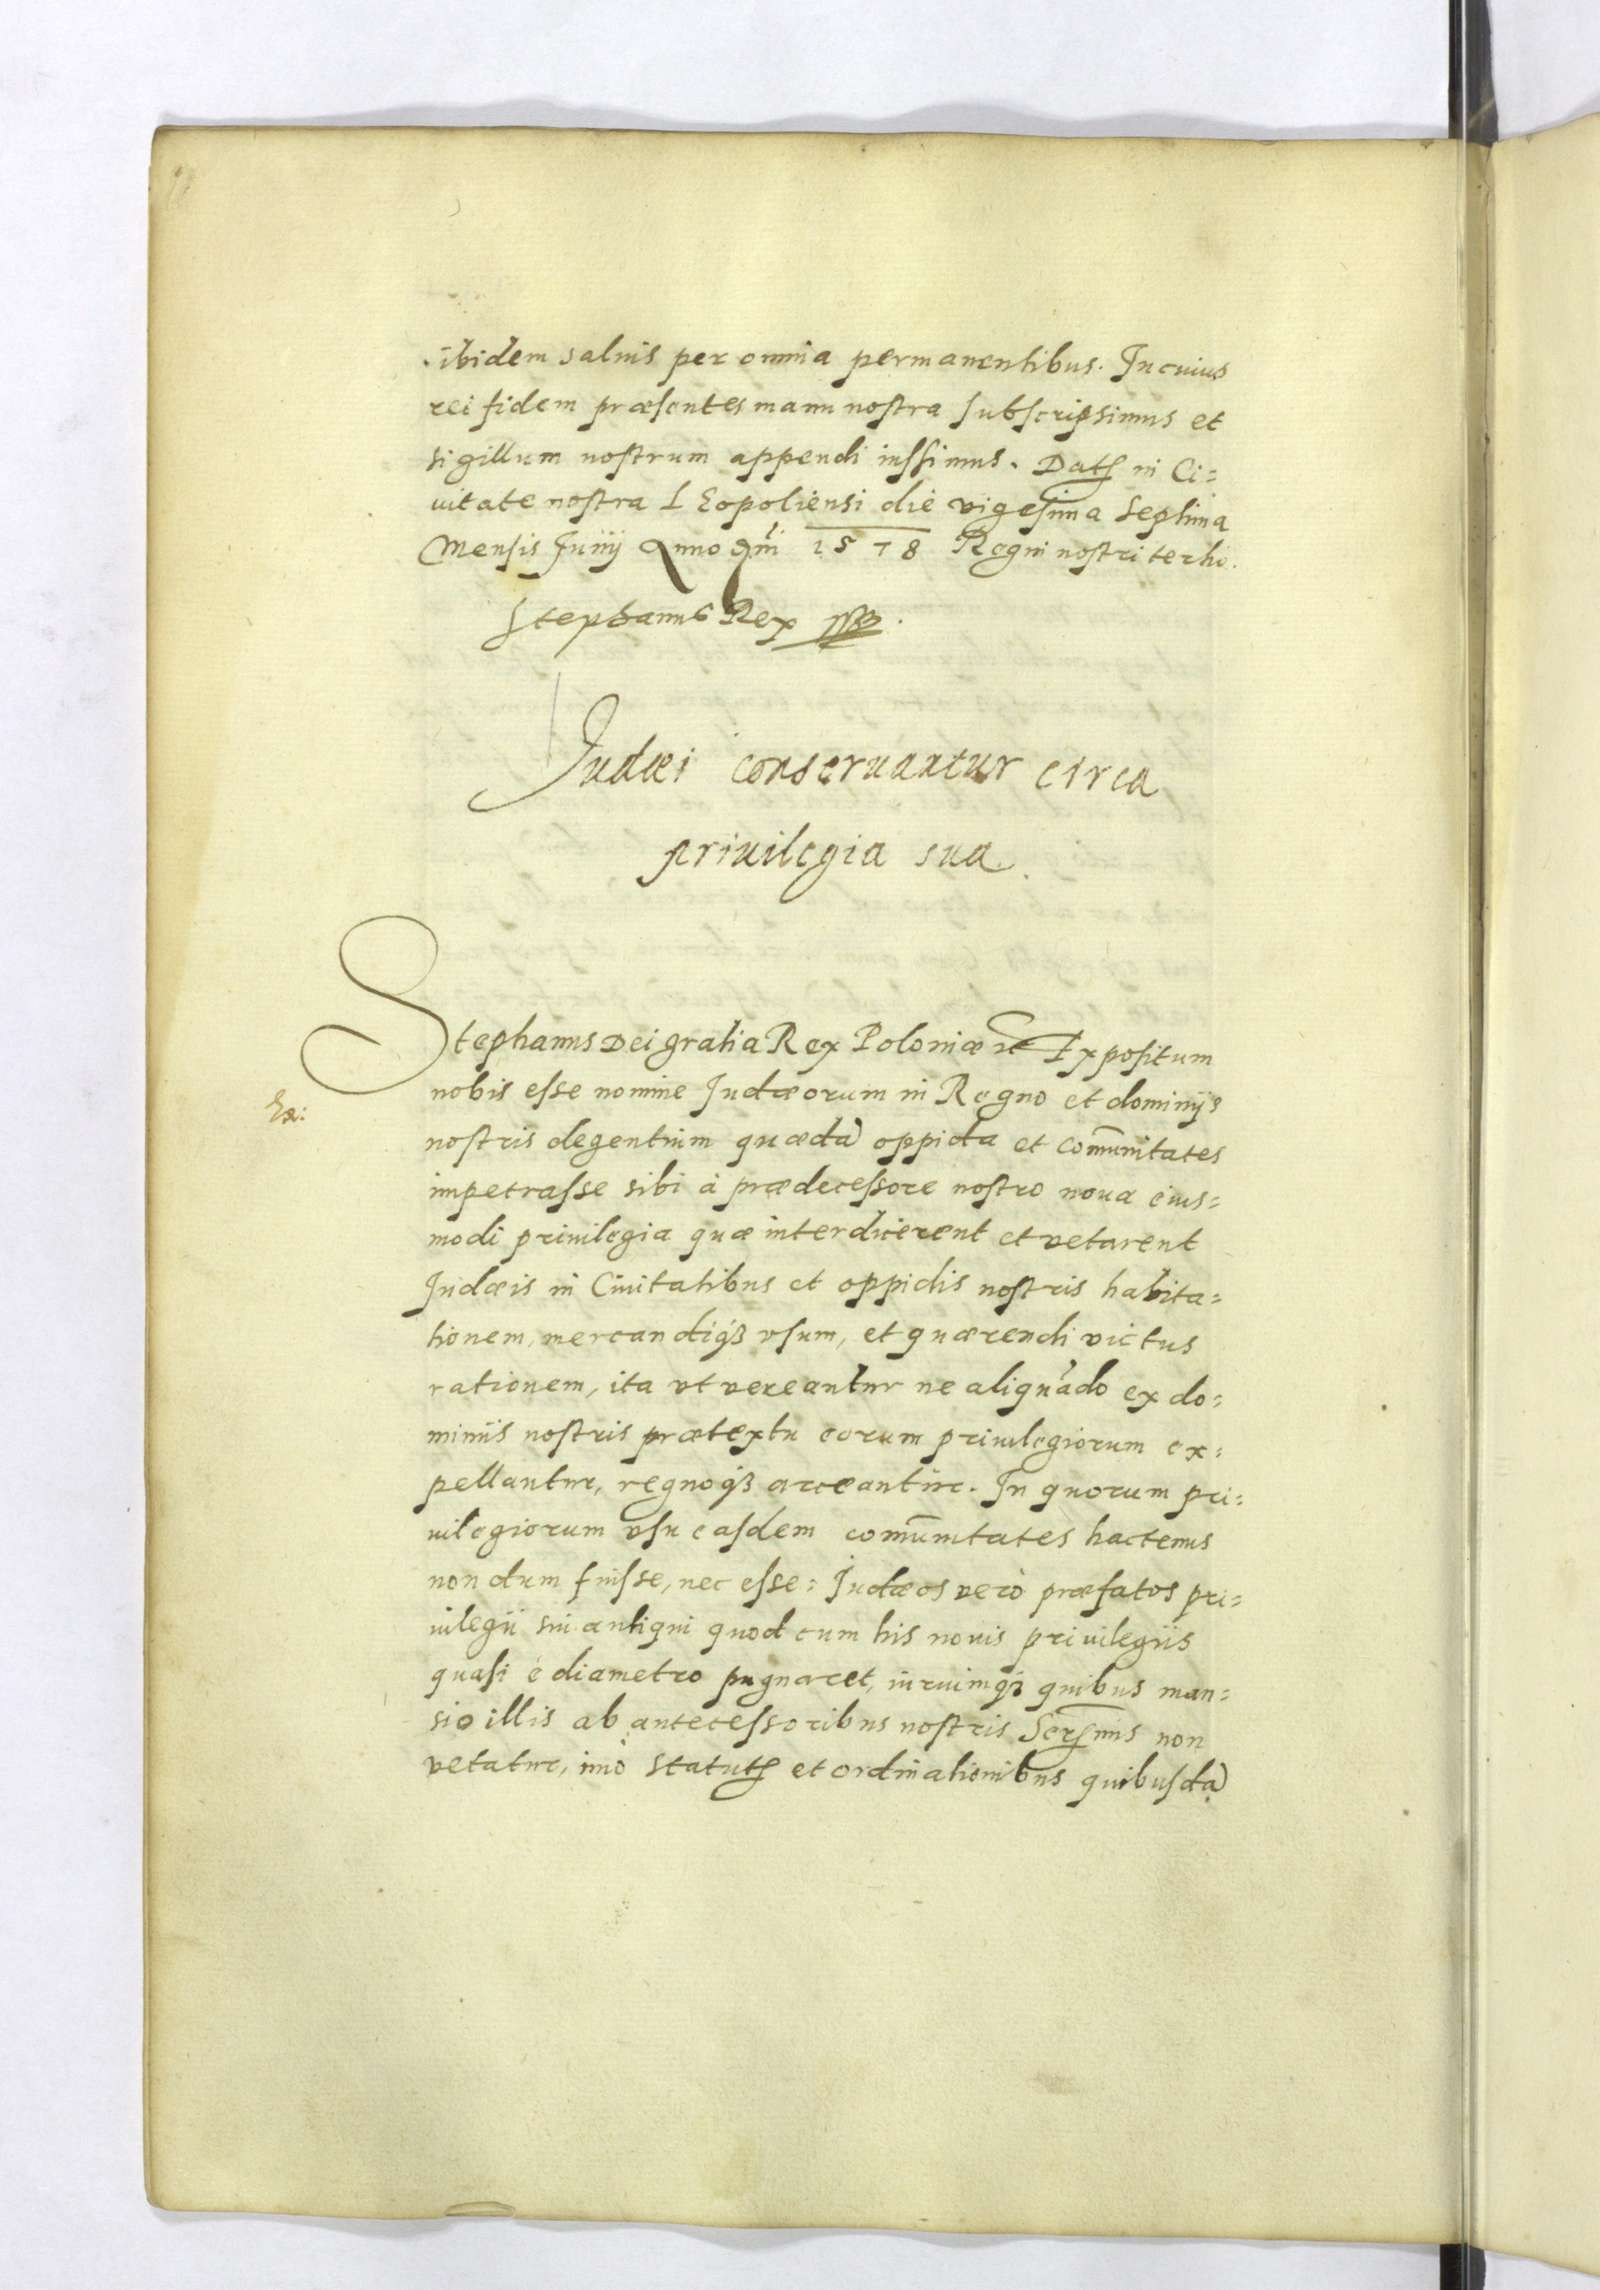 ibidem saluis per omnia permanentibus. In cuius
rei fidem præsentes manu nostra subscripsimus et
sigillum nostrum appendi iussimus. Datȩ in Ci=
uitate nostra Leopoliensi die vigesima septima
Mensis Iunij Anno Dm̃i 1578 Regni nostri tertio.
Stephanus Rex
Iudæi conseruantur circa
priuilegia sua.
Stephanus Dei gratia Rex Poloniæ etc Expositum
nobis esse nomine Iudæorum in Regno et dominijs
nostris degentium quædã oppida et com̃unitates
impetrasse sibi à prædecessore nostro noua eius=
modi priuilegia quæ interdicerent et vetarent
Iudæis in Ciuitatibus et oppidis nostris habita=
tionem, mercandiq́ꝫ vsum, et quærendi victus
rationem, ita vt vereantur ne aliquãdo ex do=
miniis nostris prætextu eorum priuilegiorum ex=
pellantur, regnoq́ꝫ arceantur. In quorum pri=
uilegiorum vsu easdem com̃unitates hactenus
non dum fuisse, nec esse: Iudæos verò præfatos pri=
uilegii sui antiqui quod cum his nouis priuilegiis
quasi è diametro pugnaret, iuriumqꝫ quibus man=
sio illis ab antecessoribus nostris Serẽmis non
vetatur, imò statutȩ et ordinationibus quibusdã